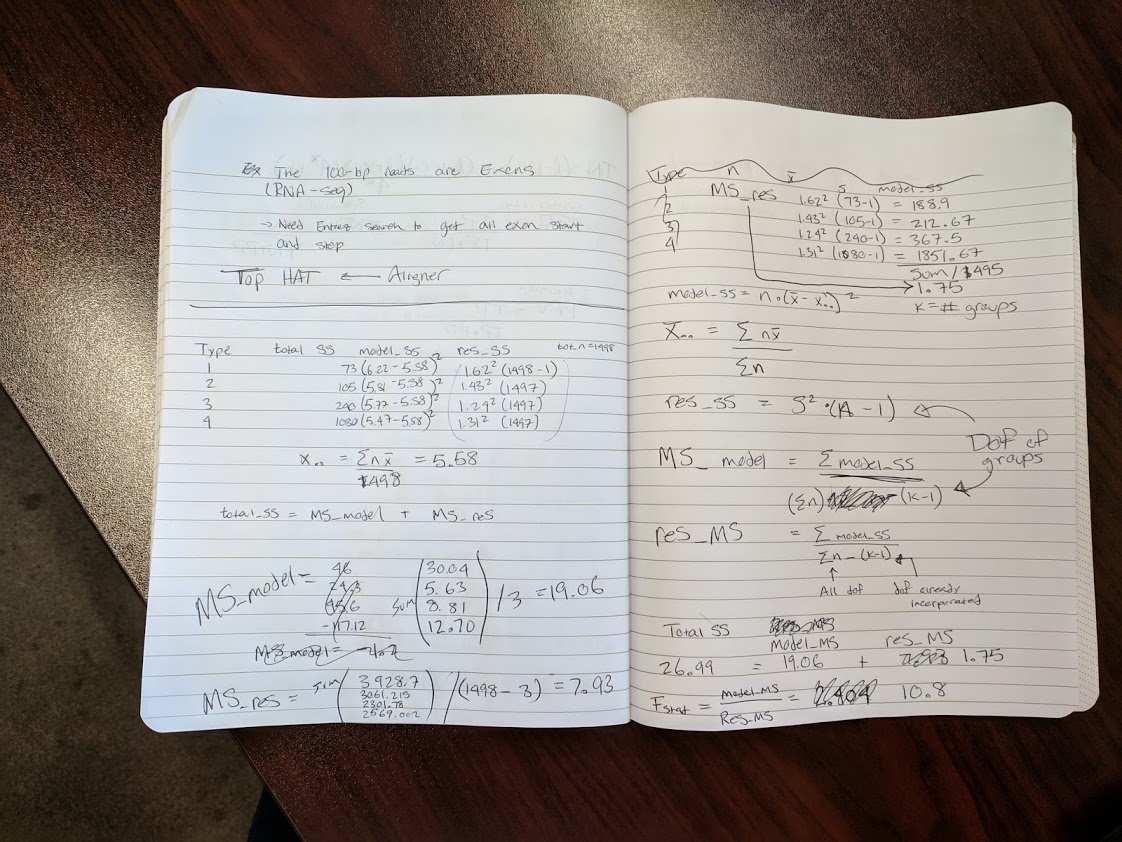 Ex The 100-bp reads are Exons
(RNA-seq)
→ Need Entrez search to get all exon start
and stop
Top HAT ← Aligner
Type total SS model_SS res_SS tot_n=1498
1 73(6.22-5.58)² 1.62² (1498-1)
2 105(5.81-5.58)² 1.43² (1497)
3 240(5.77-5.58)² 1.24² (1497)
4 1080(5.47-5.58)² 1.31² (1497)
X.. = Σn x̄ / 1498 = 5.58
total_SS = MS_model + MS_res
MS_model = sum (30.04
5.63
8.81
12.70) / 3 = 19.06
46
-17.12
MS_model = -4.2
MS_res = sum (3928.7
3061.215
2301.78
2569.002) / (1498-3) = 7.93
Type n x̄ s model_SS
MS_res
1 1.62² (73-1) = 188.9
2 1.43² (105-1) = 212.67
3 1.24² (240-1) = 367.5
4 1.31² (1080-1) = 1851.67
sum / 1495
→ 1.75
model_SS = n·(x̄ - x̄..)²
K = # groups
X̄.. = Σ n x̄ / Σn
res_SS = S²·(n-1)
DoF of
groups
MS_model = Σ model_SS / (Σn) (K-1)
res_MS = Σ model_SS / Σn-(K-1)
↑
All dof dof already
incorporated
Total SS Model_MS res_MS
26.99 = 19.06 + 1.75
Fstat = model_MS / Res_MS = 10.8